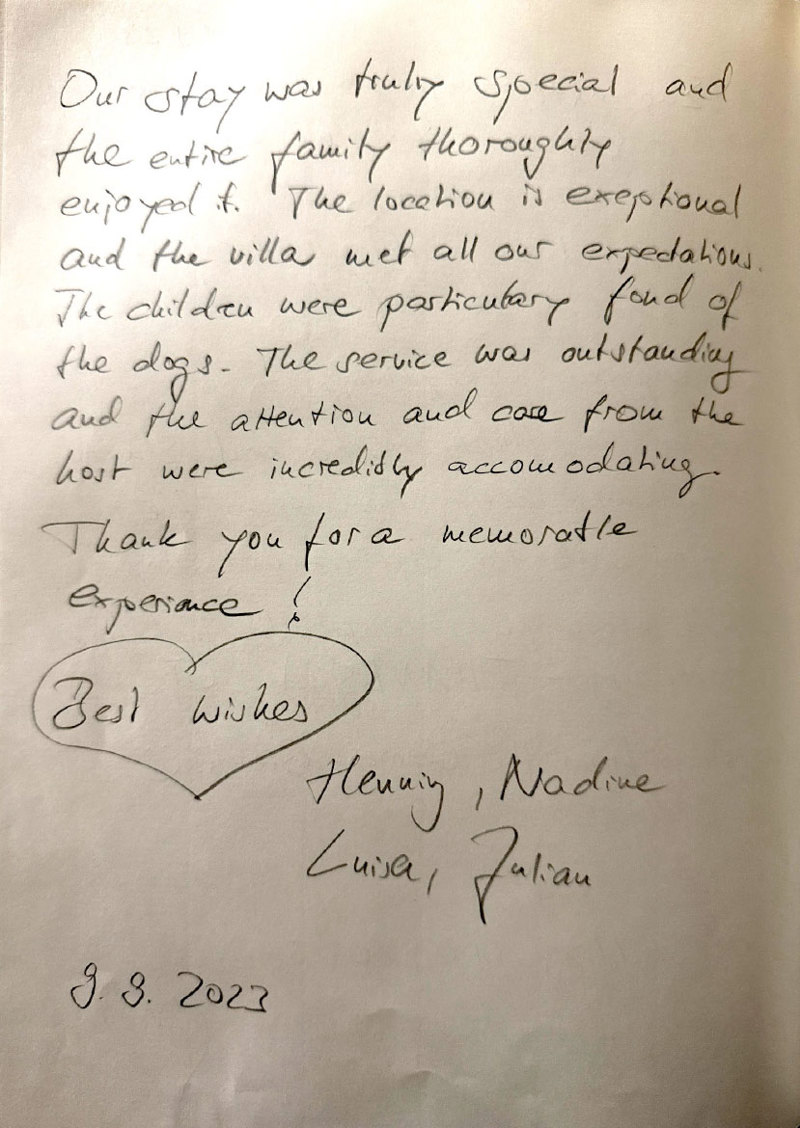 Our stay was truly special and
the entire family thoroughly
enjoyed it. The location is exeptional
and the villa met all our expectations.
The children were particulary fond of
the dogs. The service was outstanding
and the attention and care from the
host were incredibly accomodating.
Thank you for a memorable
experiance!
Best wishes
Henning, Nadine
Luisa, Julian
9.9.2023